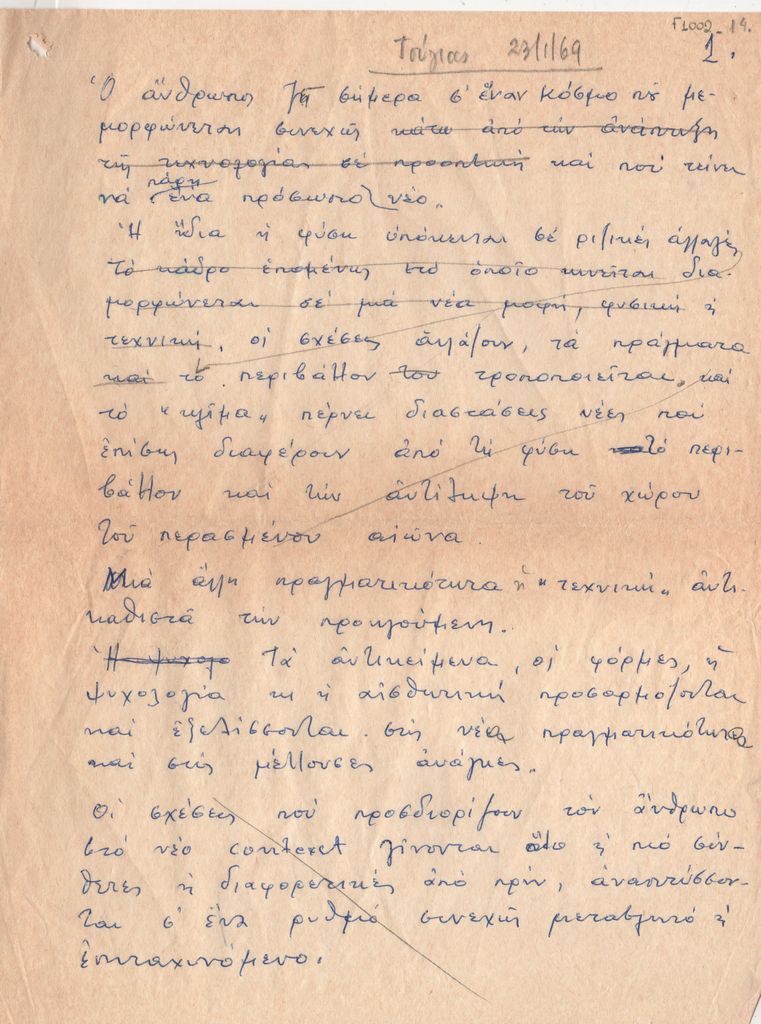 Γ1002-14.
Τσίγκας 23/1/69 1.
Ὁ ἄνθρωπος ζῆ σήμερα σ' ἕναν κόσμο ποὺ με-
μορφώνεται συνεχῶς κάτω ἀπό τὴν ἀνάπτυξη
τῆς τεχνολογίας σέ προοπτική καί πού τείνει
νά πάρη ἕνα πρόσωπο νέο.
Ἡ ἴδια ἡ φύση ὑπόκειται σέ ριζικές ἀλλαγές
τό κάδρο ἑπομένως στό ὁποῖο κινεῖται δια-
μορφώνεται σέ μιά νέα μορφή, φυσική ἤ
τεχνική, οἱ σχέσεις ἀλλάζουν, τά πράγματα
καί τό περιβάλλον του τροποποιεῖται, καί
τό "κλῖμα" πέρνει διαστάσεις νέες πού
ἐπίσης διαφέρουν ἀπό τή φύση τό περι-
βάλλον καί τήν ἀντίληψη τοῦ χώρου
τοῦ περασμένου αἰώνα.
Μιά ἄλλη πραγματικότητα ἡ "τεχνική" ἀντι-
καθιστᾶ τήν προηγούμενη.
Ἡ ψυχολο Τά ἀντικείμενα, οἱ φόρμες, ἡ
ψυχολογία κι ἡ αἰσθητική προσαρμόζονται
καί ἐξελίσσονται στίς νέες πραγματικότητες
καί στίς μέλλουσες ἀνάγκες.
Οἱ σχέσεις πού προσδιορίζουν τόν ἄνθρωπο
στό νέο context γίνονται ὅλο ἤ πιό σύν-
θετες ἤ διαφορετικές ἀπό πρίν, ἀναπτύσσον-
ται σ' ἕνα ρυθμό συνεχῶς μεταβλητό ἤ
ἐπιταχυνόμενο.